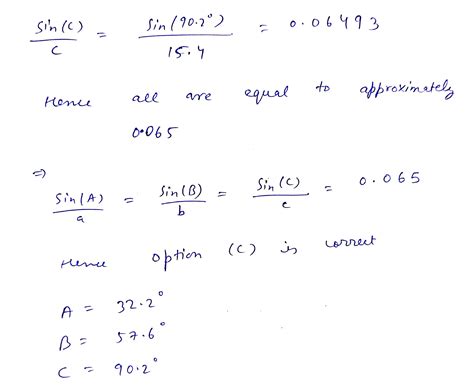 Sin(C)/c = Sin(90.2°)/15.4 = 0.06493
Hence all are equal to approximately
0.065
⇒ Sin(A)/a = Sin(B)/b = Sin(C)/c = 0.065
Hence option (C) is correct
A = 32.2°
B = 57.6°
C = 90.2°